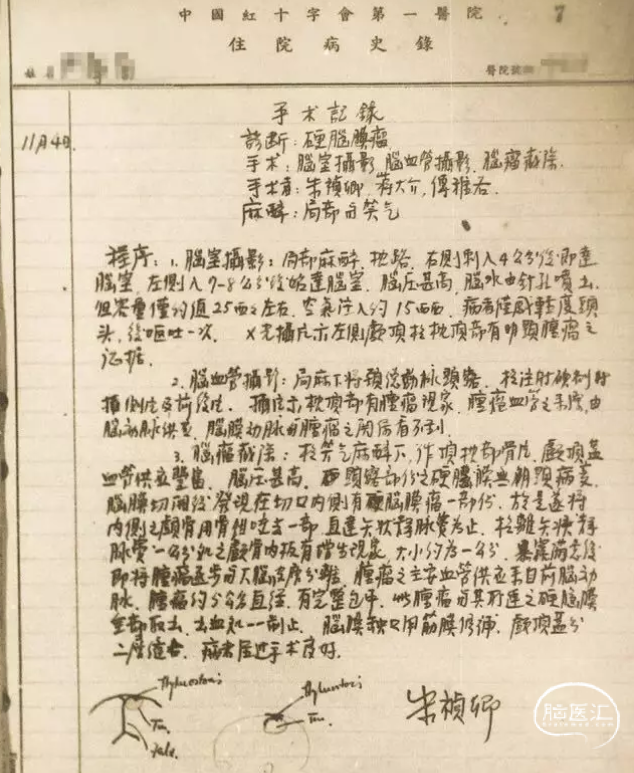 中國紅十字會第一醫院
7
住院病史錄
醫院號
11月4日
手术記錄
診断：硬腦膜瘤
手术：腦室攝影，腦血管攝影，腦瘤截除.
手术者：朱禎卿，蒋大介，傅雅各
麻醉：局部与笑气
程序：1. 腦室攝影：局部麻醉，枕路，右側刺入4公分後即達
腦室，左側入7-8公分後始達腦室，腦压甚高，腦水由針孔噴出
但容量僅約值25西西左右，空氣注入約15西西，病者陸感輕度頭
头，後嘔吐一次. X光攝片示左側顱頂枕部有明顯腫瘤之
证据.
2. 腦血管攝影：局麻下将頸後動脉顕露，
攝側位及前後位. 攝片示枕頂部有腫瘤現象，腫瘤血管之来源，由
腦動脉供应，腦膜動脉与腫瘤之関係看不到.
3. 腦瘤截除：於笑气麻醉下，作頂枕部骨片，顱頂蓋
血管供应豐富，腦压甚高，顕露部份之硬腦膜無明顕病变，
腦膜切開後發現在切口内側有硬腦膜瘤一部份，於是遂将
内側之顱骨用骨钳咬去一部直達矢狀靜脉竇为止，於離矢狀靜
脉竇一公分处之顱骨内板有增生現象，大小約为一公分，
即将腫瘤逐步与大腦皮層分離，腫瘤之主要血管供应来自前腦动
脉，腫瘤約5公分直径，有完整包膜，此腫瘤与其附連之硬腦膜
全部取去，出血处一一制止，腦膜缺口用筋膜修補，顱頂蓋分
二層缝合，病者经过手术良好.
Hyperostosis
Tu.
Falx.
Hyperostosis
Tu.
朱禎卿
脑医汇